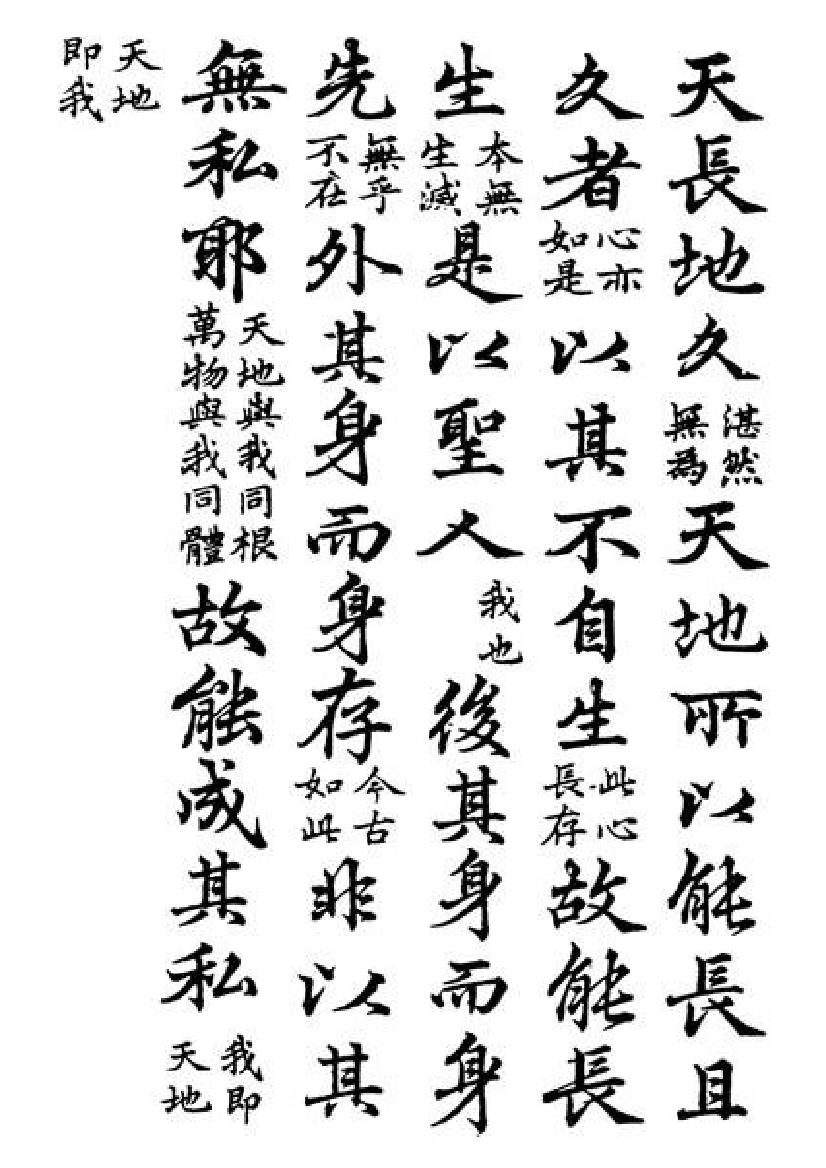 天長地久湛然無為天地所以能長且
久者心亦如是以其不自生此心長存故能長
生本無生滅是以聖人我也後其身而身
先無乎不在外其身而身存今古如此非以其
無私耶天地與我同根萬物與我同體故能成其私我即天地
天地即我